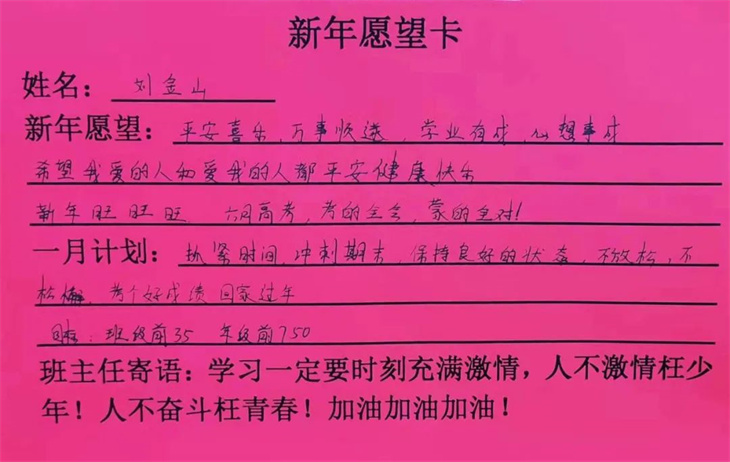 新年愿望卡
姓名：刘金山
新年愿望：平安喜乐，万事顺遂，学业有成，心想事成
希望我爱的人和爱我的人都平安健康快乐
新年旺旺旺 六月高考，考的全会，蒙的全对！
一月计划：抓紧时间，冲刺期末，保持良好的状态，不放松，不
松懈，考个好成绩回家过年
目标：班级前35 年级前750
班主任寄语：学习一定要时刻充满激情，人不激情枉少
年！人不奋斗枉青春！加油加油加油！